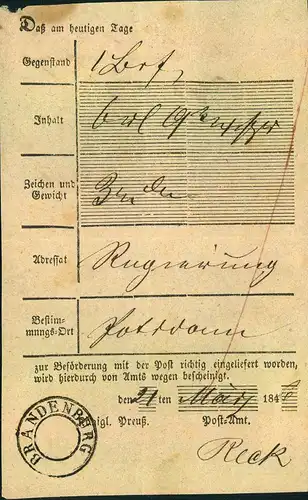 Daß am heutigen Tage
Gegenstand 1 Brf,
Inhalt
Zeichen und
Gewicht
Adressat Regierung
Bestim-
mungs-Ort Potsdam
zur Beförderung mit der Post richtig eingeliefert worden,
wird hierdurch von Amts wegen bescheinigt.
den 21 ten März 184
BRANDENBURG
Königl. Preuß. Post-Amt.
Reck